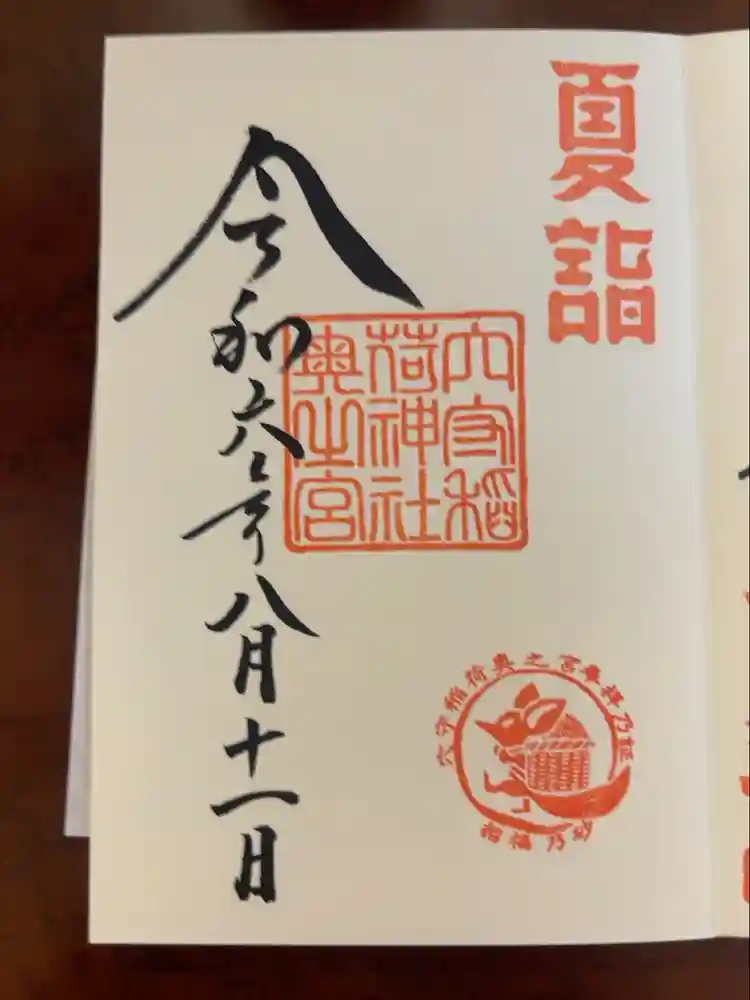 夏詣
穴守稲
荷神社
奥之宮
令和六年八月十一日
穴守稲荷奥之宮奉拝乃証
招福乃砂